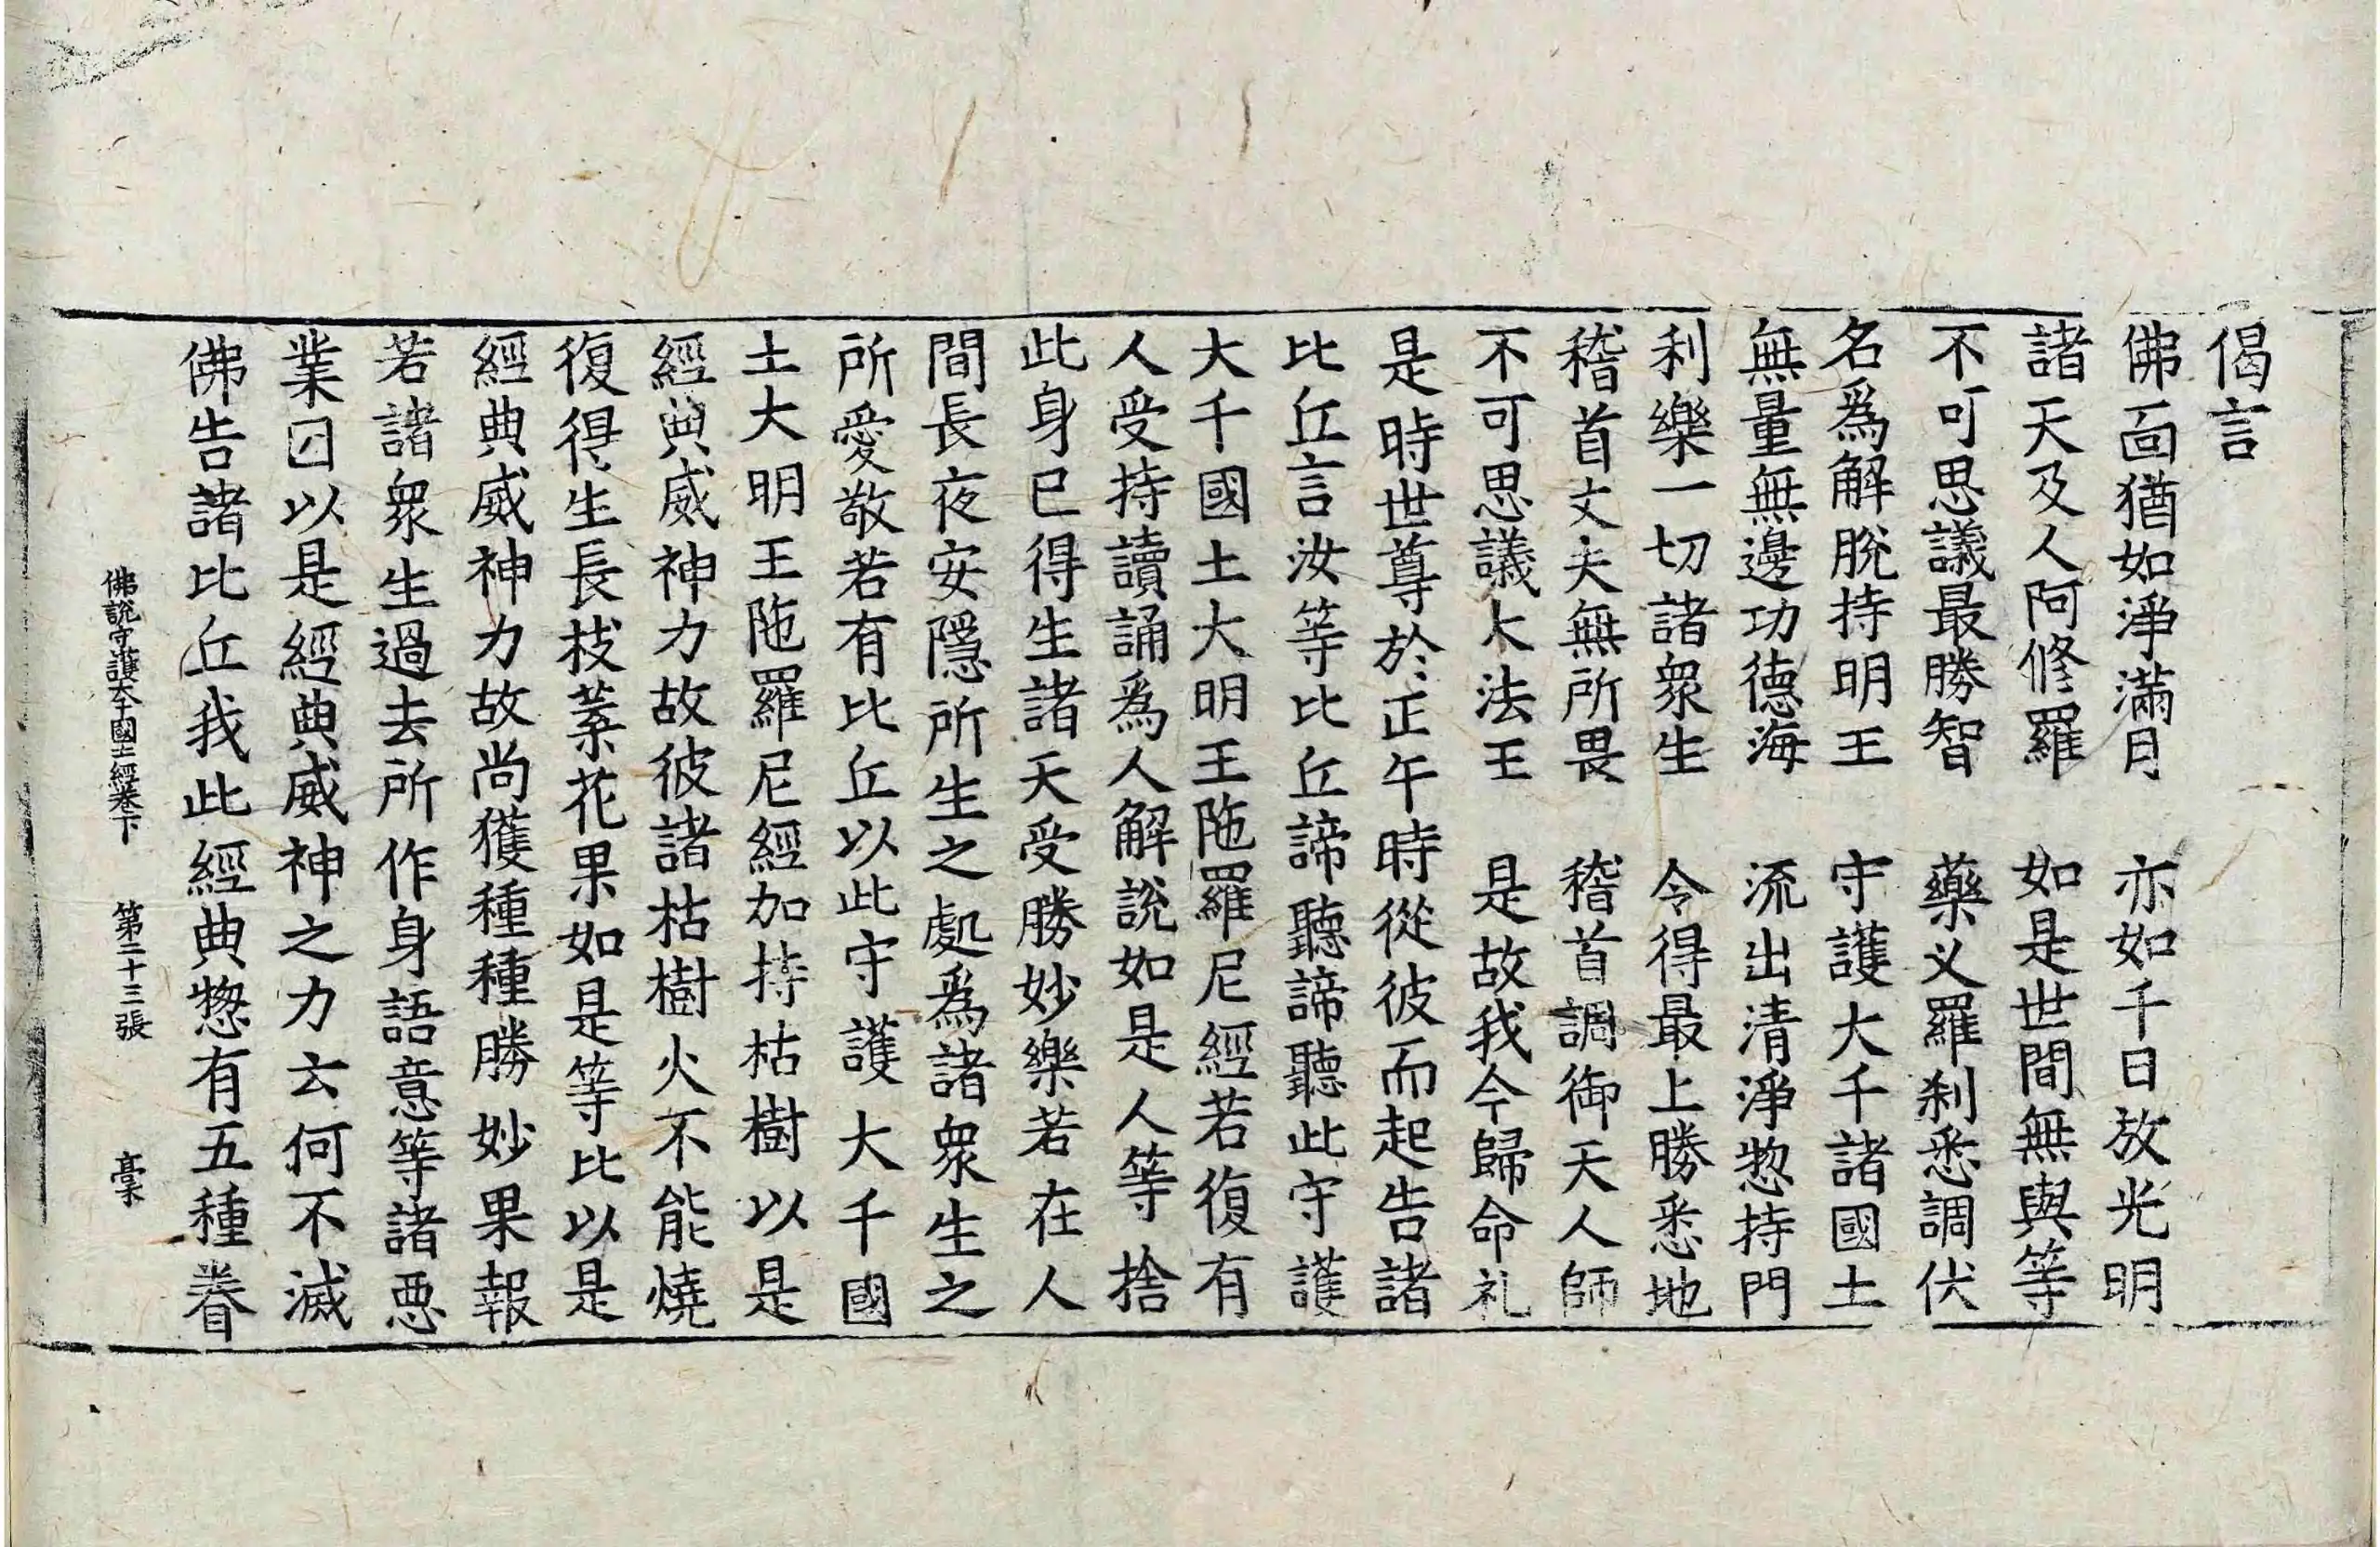 偈言
佛面猶如淨滿月　亦如千日放光明
諸天及人阿修羅　如是世間無與等
不可思議最勝智　藥叉羅刹悉調伏
名爲解脫持明王　守護大千諸國土
無量無邊功德海　流出清淨惣持門
利樂一切諸衆生　令得最上勝悉地
稽首丈夫無所畏　稽首調御天人師
不可思議大法王　是故我今歸命礼
是時世尊於正午時從彼而起告諸
比丘言汝等比丘諦聽諦聽此守護
大千國土大明王陁羅尼經若復有
人受持讀誦爲人解說如是人等捨
此身已得生諸天受勝妙樂若在人
間長夜安隱所生之處爲諸衆生之
所愛敬若有比丘以此守護大千國
土大明王陁羅尼經加持枯樹以是
經典威神力故彼諸枯樹火不能燒
復得生長枝葉花果如是等比以是
經典威神力故尚獲種種勝妙果報
若諸衆生過去所作身語意等諸惡
業因以是經典威神之力云何不滅
佛告諸比丘我此經典惣有五種眷
佛說守護大千國土經卷下　第二十三張　毫